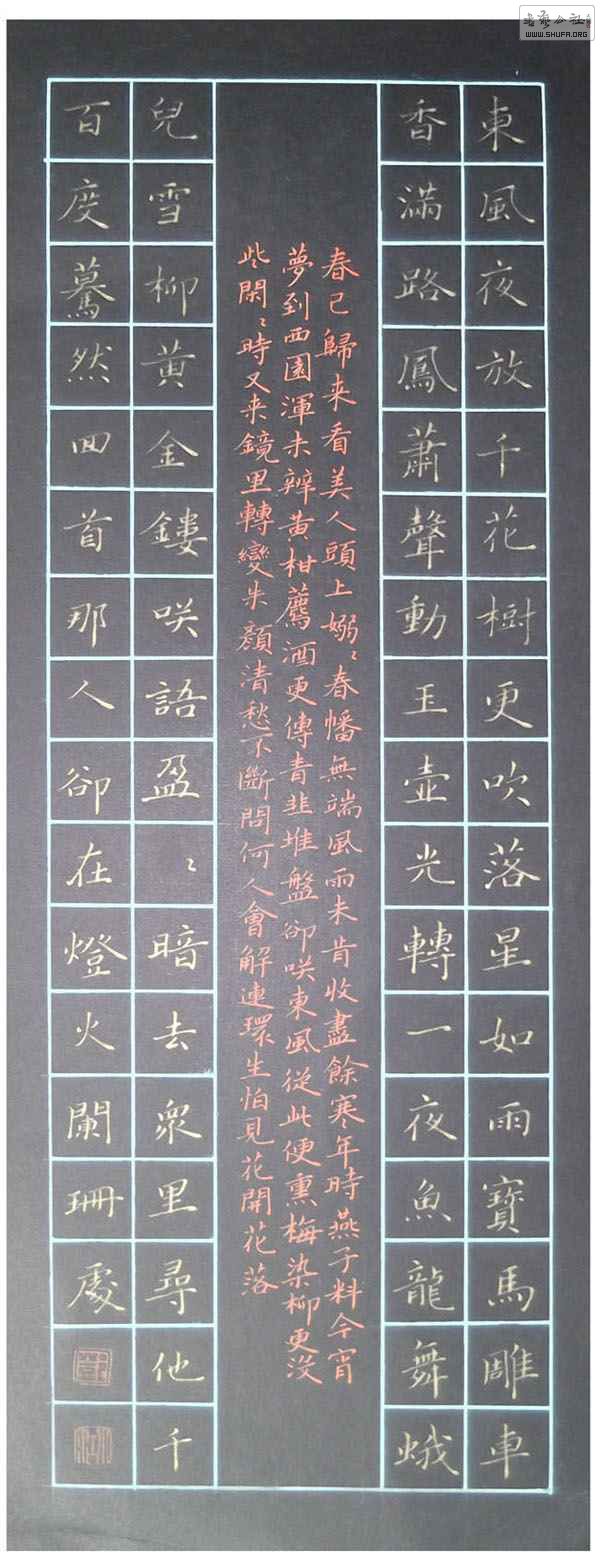 東風夜放千花樹更吹落星如雨寶馬雕車
香滿路鳳蕭聲動玉壺光轉一夜魚龍舞蛾
春已歸来看美人頭上嫋〻春幡無端風雨未肯收盡餘寒年時燕子料今宵
夢到西園渾未辨黄柑薦酒更傳青韭堆盤卻咲東風從此便熏梅染柳更没
些閑〻時又来鏡里轉變朱顏清愁不斷問何人會解連環生怕見花開花落
兒雪柳黄金鏤咲語盈〻暗去衆里尋他千
百度驀然回首那人卻在燈火闌珊處
WWW.SHUFA.ORG